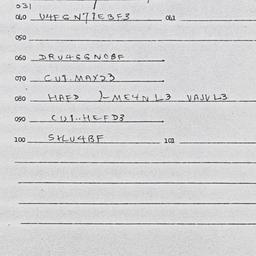 031
040 U4FGN71EBF3 061
050
060 DRU4SGNOBF
070 CU1.MAX23
080 HAFD }-ME4NL3 VAJVL3
090 CU1..HEFD3
100 S+LU4BF 101